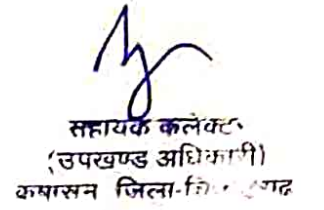 सहायक कलेक्टर
(उपखण्ड अधिकारी)
कपासन जिला-